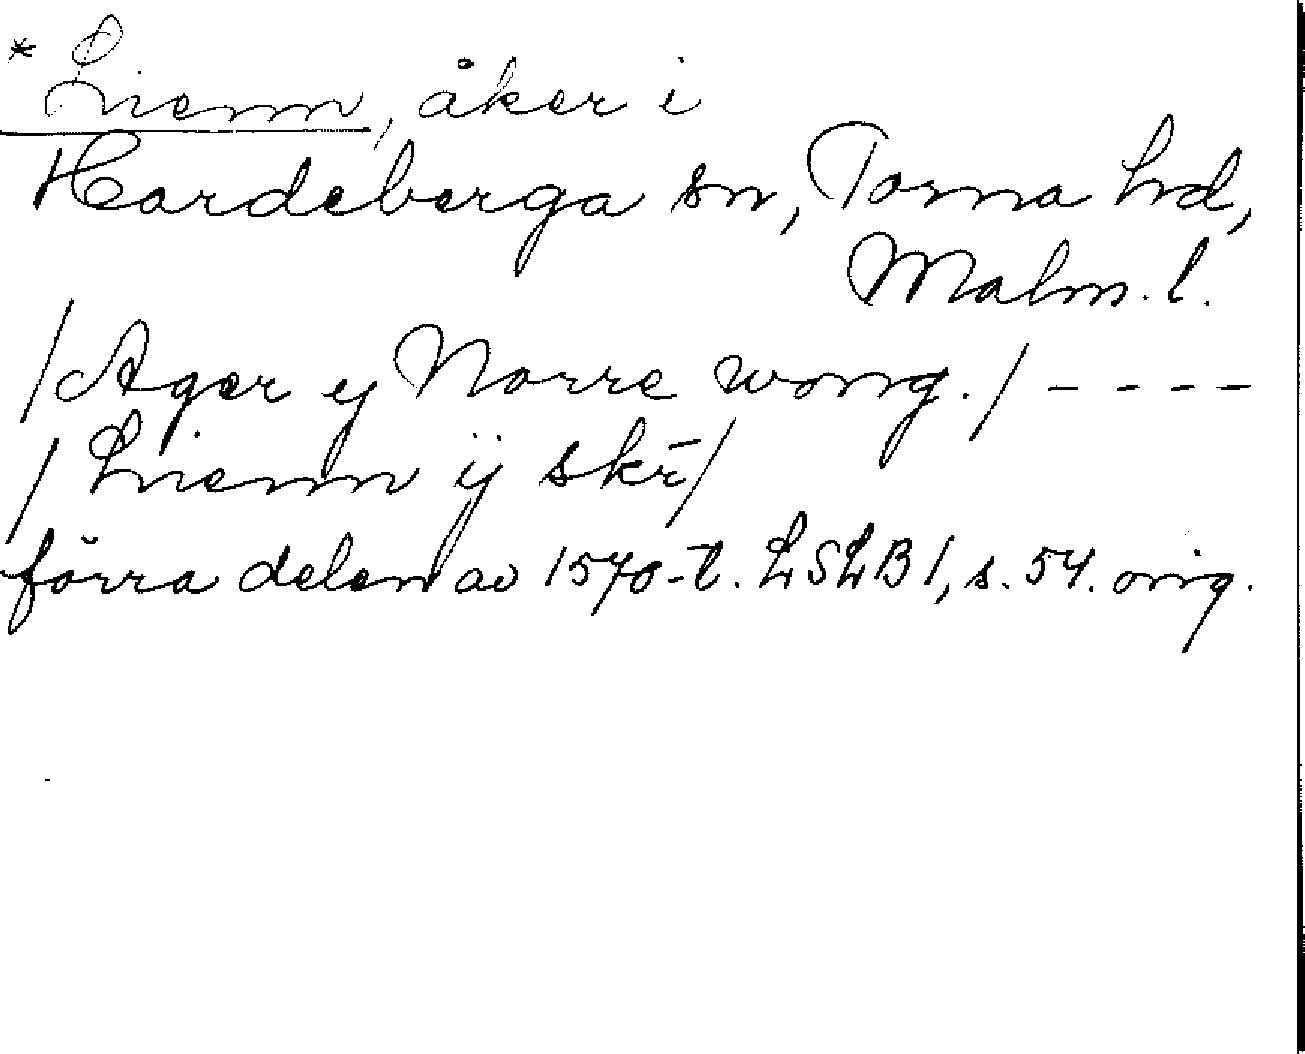 * Lienn, åker i
Hardeberga sn, Torna hd,
Malm. l.
/Ager y Norre wong./ - - - -
/Lienn ij skr̄/
förra delen av 1570-t. LSLB 1, s. 54. orig.